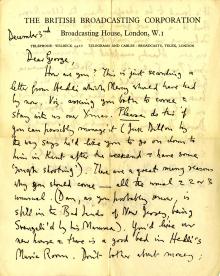 THE BRITISH BROADCASTING CORPORATION
Broadcasting House, London, W.1
TELEPHONE: WELBECK 4468 TELEGRAMS AND CABLES: BROADCASTS, TELEX, LONDON
December 3rd
Dear George,
How are you? This is just seconding a
letter from Hedli which Mercy should have had
by now, viz. asking you both to come &
stay with us over Xmas. Please do this if
you can possibly manage it (Jack Dillon by
the way says he'd like you to go on down to
him in Kent after the weekend & have some
rough shooting). There are a great many reasons
why you should come — all the usual 2 or 3
unusual. (Dan, as you probably know, is
still in the Bad lands of New Jersey, being
by his Momma). You'd like our
new house & there is a good bed in Hedli's
Music Room. Don't bother about money;